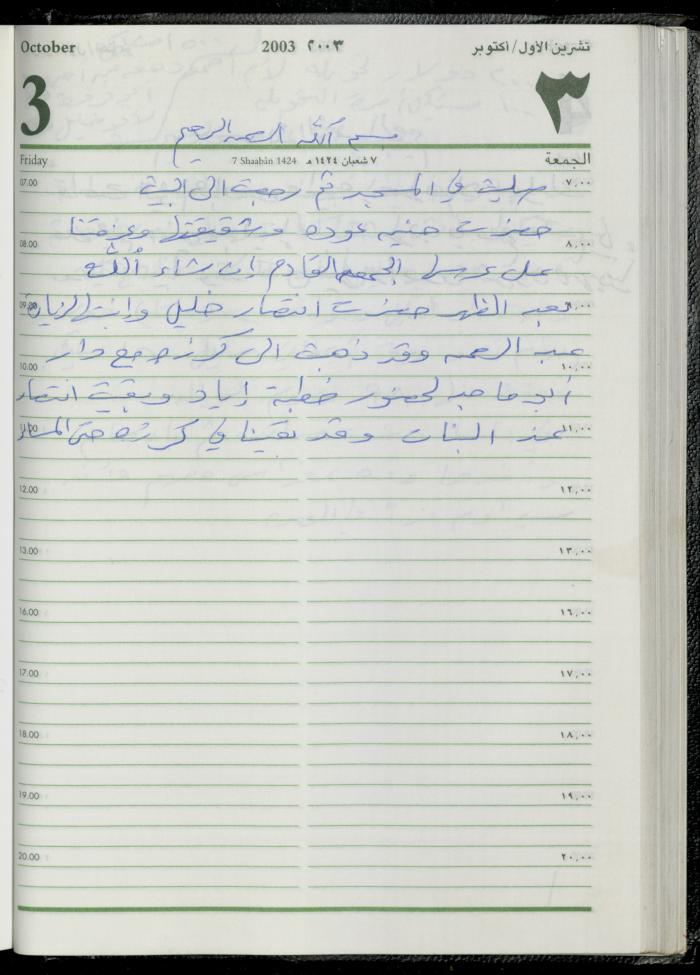 October 2003 ٢٠٠٣ تشرين الأول/أكتوبر
3 ٣
بسم الله الرحمن الرحيم
Friday 7 Shaabân 1424 ٧ شعبان ١٤٢٤ هـ الجمعة
07.00 صليت في المسجد ثم رجعت الى البيت ٧,٠٠
حضرت حنيه عوده وشقيقتها وعزمتنا
08.00 على عرسها الجمعه القادم إن شاء الله ٨,٠٠
09.00 بعد الظهر حضرت انتصار خليل وابنتها لزيارة ٩,٠٠
عبد الرحمن وقد ذهبت الى كرزه مع دار
10.00 ١٠,٠٠
أبو ماجد لحضور خطبة إياد وبقيت انتصار
11.00 عند البنات وقد بقينا في كرزه حتى المساء ١١,٠٠
12.00 ١٢,٠٠
13.00 ١٣,٠٠
16.00 ١٦,٠٠
17.00 ١٧,٠٠
18.00 ١٨,٠٠
19.00 ١٩,٠٠
20.00 ٢٠,٠٠